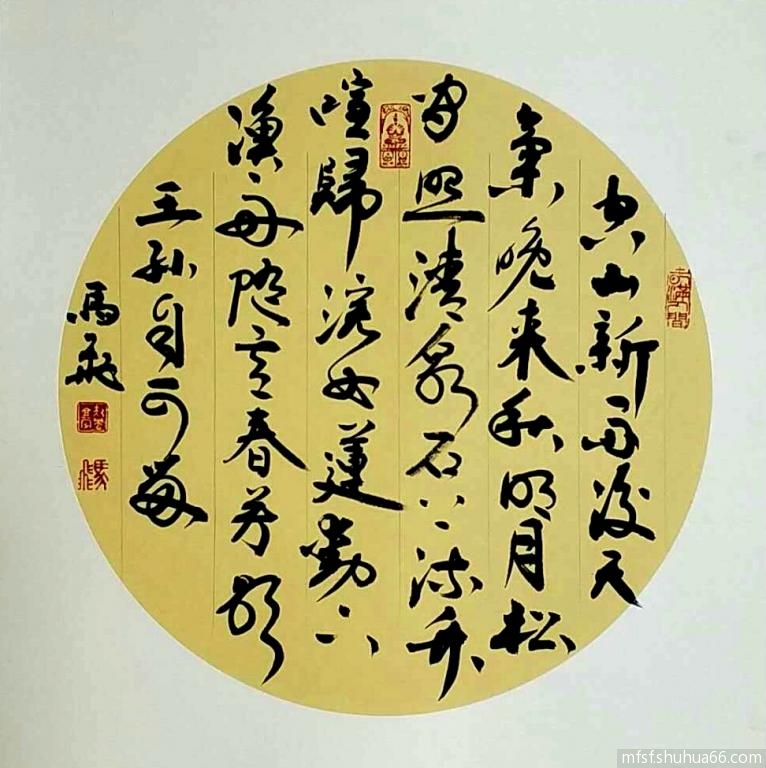 空山新雨後天
氣晚来秋明月松
間照清泉石上流竹
喧歸浣女蓮動下
漁舟隨意春芳歇
王孫自可留
馬飛
mfsf.shuhua66.com